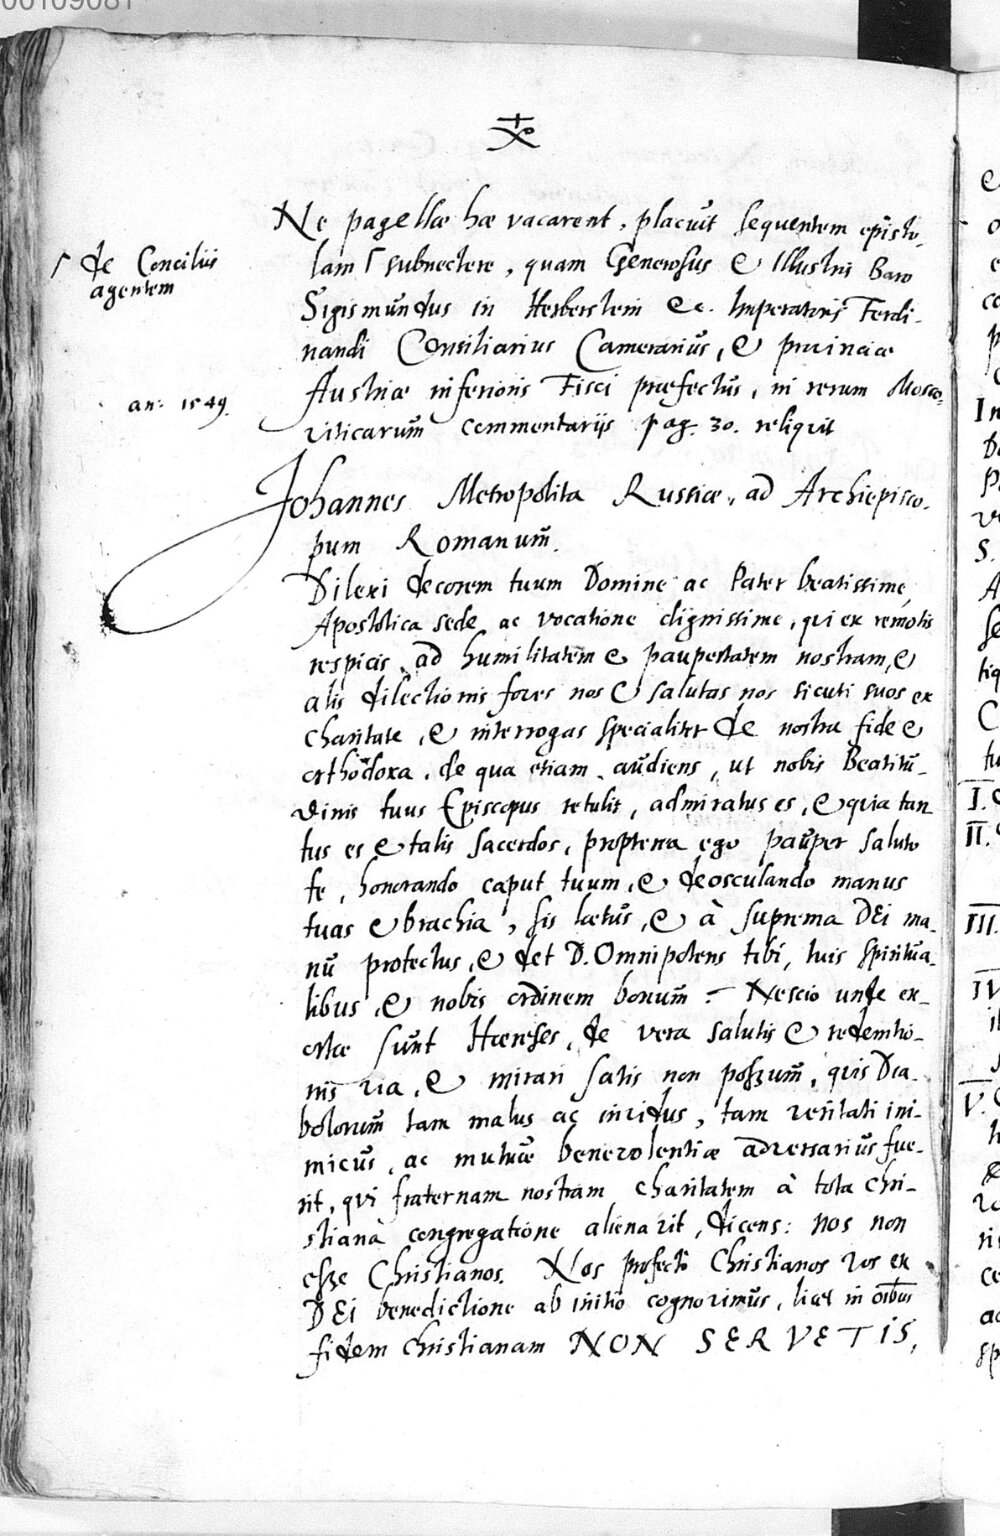 00109081
Ne pagellæ hæ vacarent, placuit sequentem episto-
⌈ de Conciliis
agentem
lam ⌈ subnectere, quam Generosus & Illustris Baro
Sigismundus in Herberstein &c. Imperatoris Ferdi-
nandi Consiliarius Camerarius, & provinciæ
Austriæ inferioris Fisci præfectus, in rerum Mosco-
an: 1549.
viticarum commentarijs pag. 30. reliquit
Johannes Metropolita Russiæ, ad Archiepisco-
pum Romanum.
Dilexi decorem tuum Domine ac Pater beatissime,
Apostolica sede ac vocatione dignissime, qui ex remotis
respicis ad humilitatem & paupertatem nostram, &
alis dilectionis foves nos & salutas nos sicuti suos ex
charitate, & interrogas specialiter de nostra fide &
orthodoxa. de qua etiam audiens, ut nobis Beatitu-
dinis tuus Episcopus retulit, admiratus es, & quia tan
tus es & talis sacerdos, propterea ego pauper saluto
te, honorando caput tuum, & deosculando manus
tuas & brachia, sis lætus, & à suprema DEi ma-
nu protectus, & det D. Omnipotens tibi, tuis spiritua-
libus, & nobis ordinem bonum. Nescio unde ex-
ortæ sunt Hæreses, de vera salutis & redemtio-
nis via, & mirari satis non possum, quis Dia-
bolorum tam malus ac invidus, tam veritati ini-
micus, ac mutuæ benevolentiæ adversarius fue-
rit, qui fraternam nostram charitatem à tota Chri-
stiana congregatione alienavit, dicens: nos non
esse Christianos. Nos profecto Christianos vos ex
DEi benedictione ab initio cognovimus, licet in oibus
fidem christianam NON SERVETIS,
I.
II.
III.
IV
V.